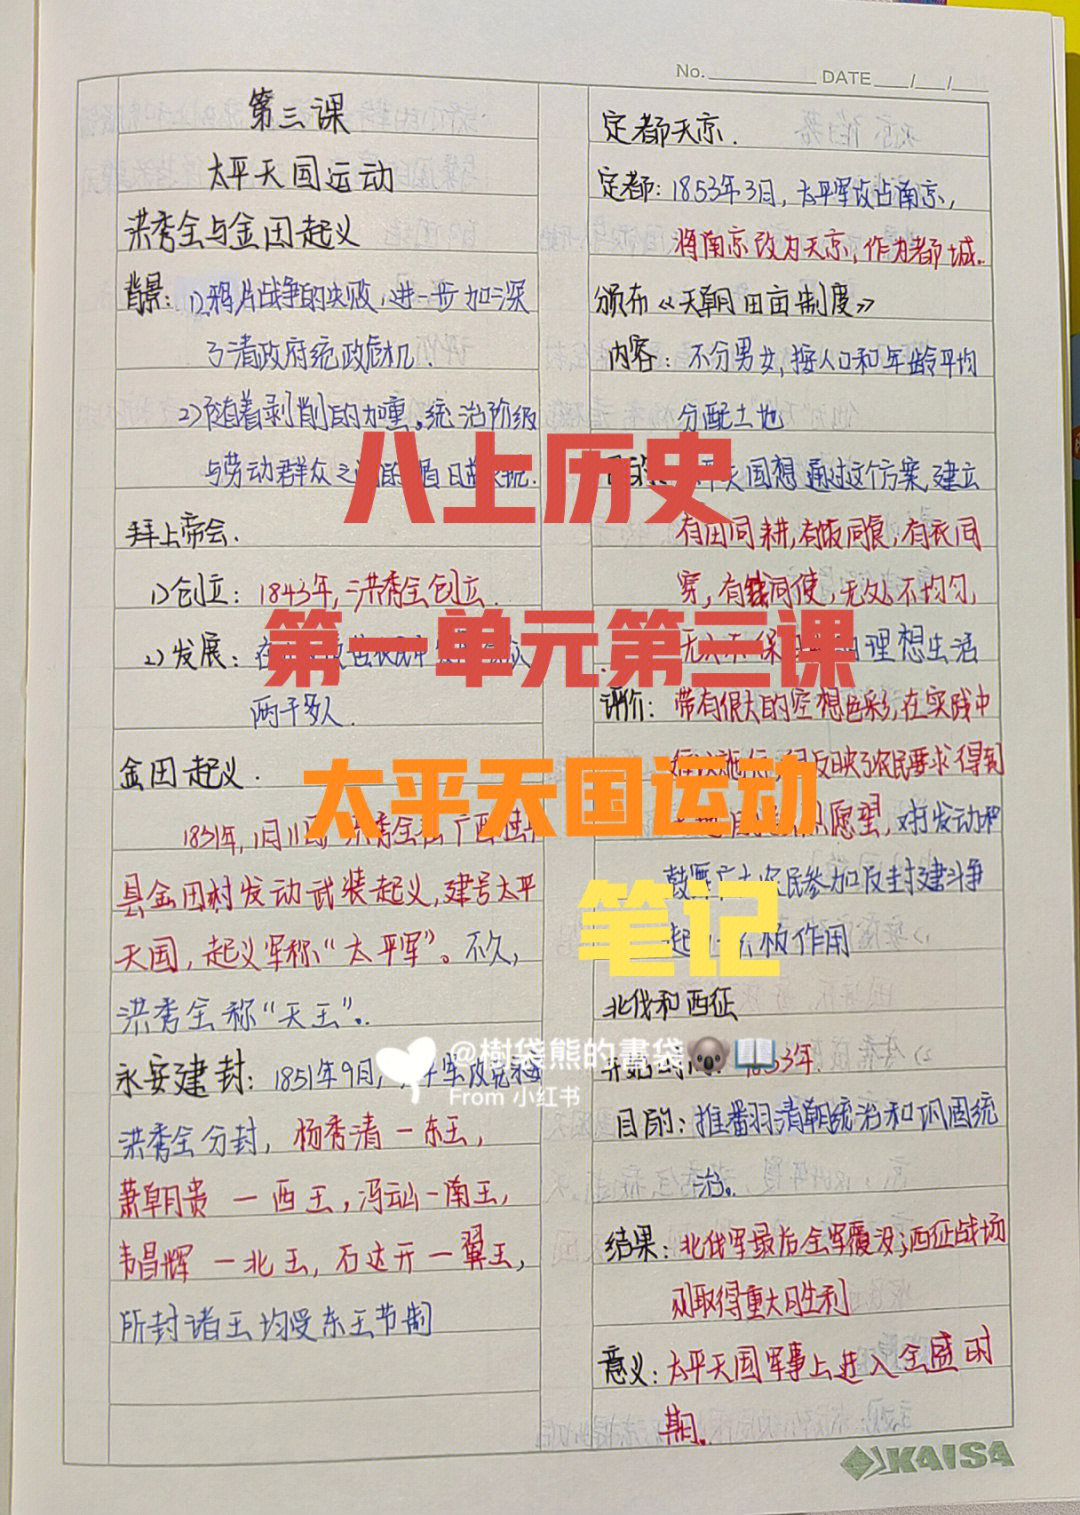 No. DATE / /
第三课
太平天国运动
洪秀全与金田起义
背景: 1)鸦片战争的失败, 进一步加深
了清政府统政危机.
2)随着剥削的加重。统治阶级
与劳动群众之间的盾日
拜上帝会.
1)创立: 1843年, 洪秀全创立.
2)发展: 在
两千多人.
金田起义.
1851年, 1月11日, 洪秀全在广西桂平
县金田村发动武装起义, 建号太平
天国, 起义军称“太平军”。不久,
洪秀全称“天王”。
永安建封: 1851年9月, 太平军攻克永安
洪秀全分封, 杨秀清一东王,
萧朝贵 一 西王, 冯云山一南王,
韦昌辉 一北王, 石达开一翼王,
所封诸王均受东王节制
定都天京.
定都: 1853年3月, 太平军攻占南京,
将南京改为天京, 作为都城。
颁布《天朝田亩制度》
内容: 不分男女, 按人口和年龄平均
分配土地
平天国想通过这个方案, 建立
有田同耕, 有饭同食, 有衣同
穿, 有钱同使, 无处不均匀,
无人不保 理想生活
评价: 带有很大的空想色彩, 在实践中
反映了农民要求得到
愿望, 对发动和
鼓舞广大农民参加反封建斗争
起 极作用
北伐和西征
开始 : 1853年
目的: 推番羽清朝统治和巩固统
治。
结果: 北伐军最后全军覆没; 西征战场
则取得重大胜利
意义: 太平天国军事上进入全盛时
期。
KAISA
八上历史
第一单元第三课
太平天国运动
笔记
@樹袋熊的書袋🐨📖
From 小红书